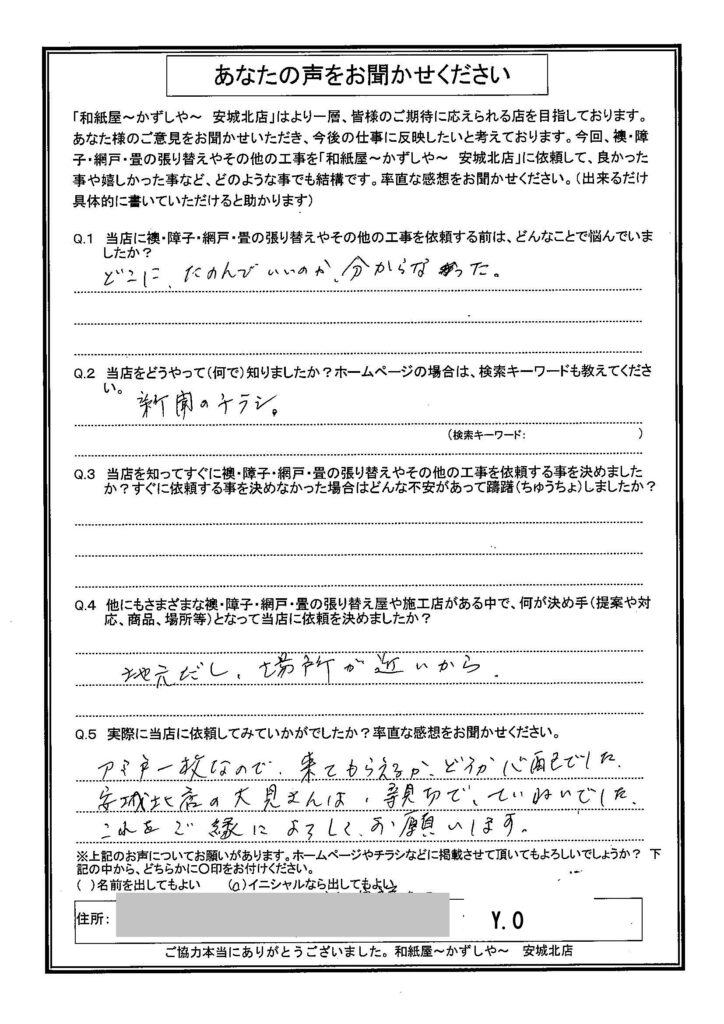 あなたの声をお聞かせください
「和紙屋～かずしや～　安城北店」はより一層、皆様のご期待に応えられる店を目指しております。
あなた様のご意見をお聞かせいただき、今後の仕事に反映したいと考えております。今回、襖・障
子・網戸・畳の張り替えやその他の工事を「和紙屋～かずしや～　安城北店」に依頼して、良かった
事や嬉しかった事など、どのような事でも結構です。率直な感想をお聞かせください。（出来るだけ
具体的に書いていただけると助かります）
Q.1　当店に襖・障子・網戸・畳の張り替えやその他の工事を依頼する前は、どんなことで悩んでいま
したか？
どこに、たのんでいいのか、分からなかった。
Q.2　当店をどうやって（何で）知りましたか？ホームページの場合は、検索キーワードも教えてくださ
い。
新聞のチラシ。
（検索キーワード：　　　）
Q.3　当店を知ってすぐに襖・障子・網戸・畳の張り替えやその他の工事を依頼する事を決めました
か？すぐに依頼する事を決めなかった場合はどんな不安があって躊躇（ちゅうちょ）しましたか？
Q.4　他にもさまざまな襖・障子・網戸・畳の張り替え屋や施工店がある中で、何が決め手（提案や対
応、商品、場所等）となって当店に依頼を決めましたか？
地元だし、場所が近いから。
Q.5　実際に当店に依頼してみていかがでしたか？率直な感想をお聞かせください。
アミ戸一枚なので、来てもらえるか、どうか心配でした。
安城北店の大見さんは、親切で、ていねいでした。
これをご縁によろしくお願いします。
※上記のお声についてお願いがあります。ホームページやチラシなどに掲載させて頂いてもよろしいでしょうか？　下
記の中から、どちらかに〇印をお付けください。
（　）名前を出してもよい　　（〇）イニシャルなら出してもよい
住所：　Y.O
ご協力本当にありがとうございました。和紙屋～かずしや～　安城北店